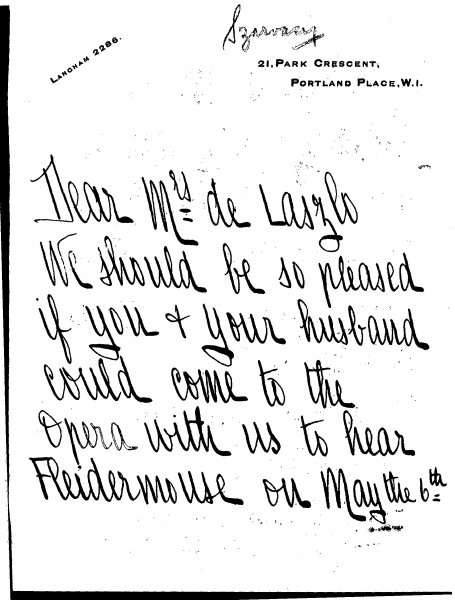 Szarvasy
Langham 2286.
21, Park Crescent,
Portland Place, W.1.
Dear Mrs de Laszlo
We should be so pleased
if you & your husband
could come to the
Opera with us to hear
Fleidermouse on May the 6th